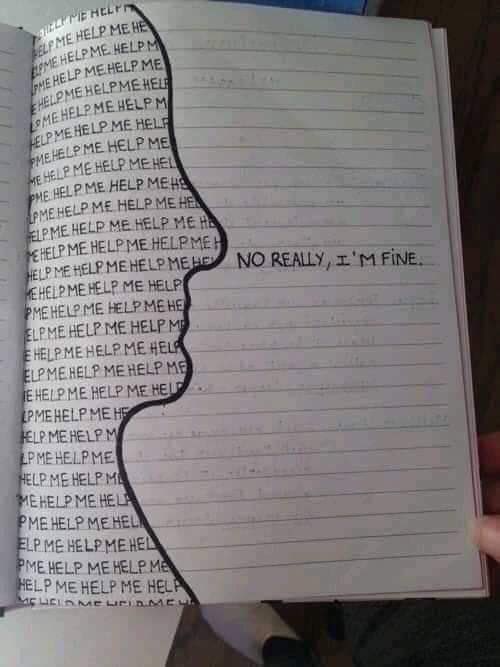 ME HELP M
HELP ME HELP ME HE
ELP ME HELP ME HELP M
PME HELP ME HELP ME
E HELP ME HELP ME HELP
LP ME HELP ME HELP M
HELP ME HELP ME HELP
PME HELP ME HELP ME
ME HELP ME HELP ME HEL
PME HELP ME HELP ME HE
LP ME HELP ME HELP ME HEL
ELP ME HELP ME HELP ME HE
ME HELP ME HELP ME HELP ME H
HELP ME HELP ME HELP ME HEL NO REALLY, I'M FINE.
ME HELP ME HELP ME HELP
PME HELP ME HELP ME HE
ELP ME HELP ME HELP ME
E HELP ME HELP ME HELP
ELP ME HELP ME HELP ME
E HELP ME HELP ME HELP
LP ME HELP ME HE
HELP ME HELP M
LP ME HELP ME
HELP ME HELP ME
ME HELP ME HELP
PME HELP ME HELP
ELP ME HELP ME HEL
PME HELP ME HELP ME
HELP ME HELP ME HELP
ME HELP ME HELP ME HE